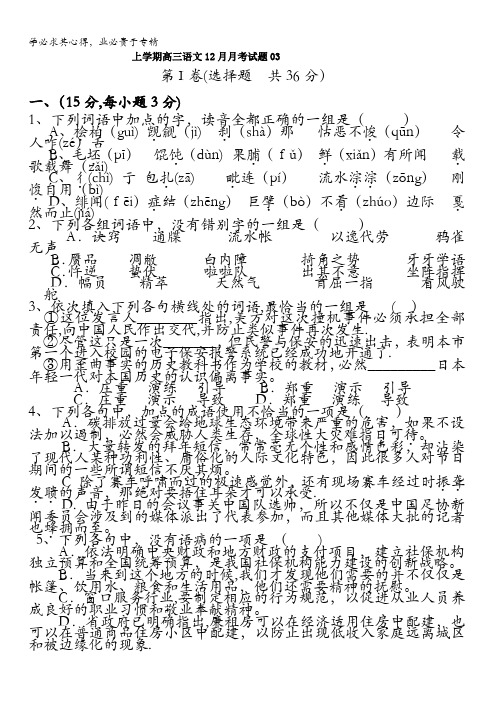 学必求其心得，业必贵于专精
上学期高三语文12月月考试题03
第Ⅰ卷(选择题　共36分）
一、（15分,每小题3分)
1、下列词语中加点的字，读音全都正确的一组是（　　）
A、桧柏（guì) 觊觎（jì) 刹（shà）那　怙恶不悛（qūn）　令
人咋(zé）舌
B、毛坯（pī）　馄饨（dùn) 果脯（fǔ）鲜（xiǎn）有所闻　载
歌载舞（zài)
C、彳(chì) 亍 包扎(zā)　毗连（pí）　流水淙淙（zōng）　刚
愎自用（bì)
D、绯闻(fēi) 症结（zhēng）巨擘（bò）不着（zhuó）边际　戛
然而止(jiá)
2、下列各组词语中，没有错别字的一组是（　　）
A．诀窍　通牒　流水帐　以逸代劳　鸦雀
无声
B.赝品　凋敝　白内障　掎角之势　牙牙学语
C.忤逆　蛰伏　啦啦队　出其不意　坐阵指挥
D．幅员　精萃　天然气　首屈一指　看风驶
舵
3、依次填入下列各句横线处的词语,最恰当的一组是　(　)
①这位发言人________指出,美方对这次撞机事件必须承担全部
责任,向中国人民作出交代,并防止类似事件再次发生.
②尽管这只是一次________,但民警与保安的迅速出击，表明本市
第一个进入校园的电子保安报警系统已经成功地开通了.
③用歪曲事实的历史教科书作为学校的教材,必然________日本
年轻一代对本国历史的认识偏离事实。
A．庄重　演练　引导　B．郑重　演示　引导
C．庄重　演示　导致　D．郑重　演练　导致
4、下列各句中，加点的成语使用不恰当的一项是（　　）
A．碳排放过量会给地球生态环境带来严重的危害，如果不设
法加以遏制，必然会威胁人类生存，全球性大灾难指日可待。
B．大量转发的拜年短信，常常毫无个性和感情色彩，却沾染
了现代人某种功利性、庸俗化的人际文化特色，因此很多人对节日
期间的一些所谓短信不厌其烦。
C 除了赛车呼啸而过的极速感觉外，还有现场赛车经过时振聋
发聩的声音，那绝对要捂住耳朵才可以承受.
D．由于昨日的会议事关中国队选帅，所以不仅是中国足协新
闻委员会涉及到的媒体派出了代表参加，而且其他媒体大批的记者
也蜂拥而至。
5、下列各句中，没有语病的一项是　（　　）
A．依法明确中央财政和地方财政的支付项目，建立社保机构
独立预算和全国统筹预算，是我国社保机构能力建设的创新战略。
B．当来到这个地方的时候,我们才发现他们需要的并不仅仅是
帐篷、饮用水、粮食和生活用品，他们还需要精神的抚慰。
C．窗口服务行业要制定相应的行为规范，以促进从业人员养
成良好的职业习惯和敬业奉献精神。
D．省政府已明确指出,廉租房可以在经济适用住房中配建，也
可以在普通商品住房小区中配建，以防止出现低收入家庭远离城区
和被边缘化的现象.